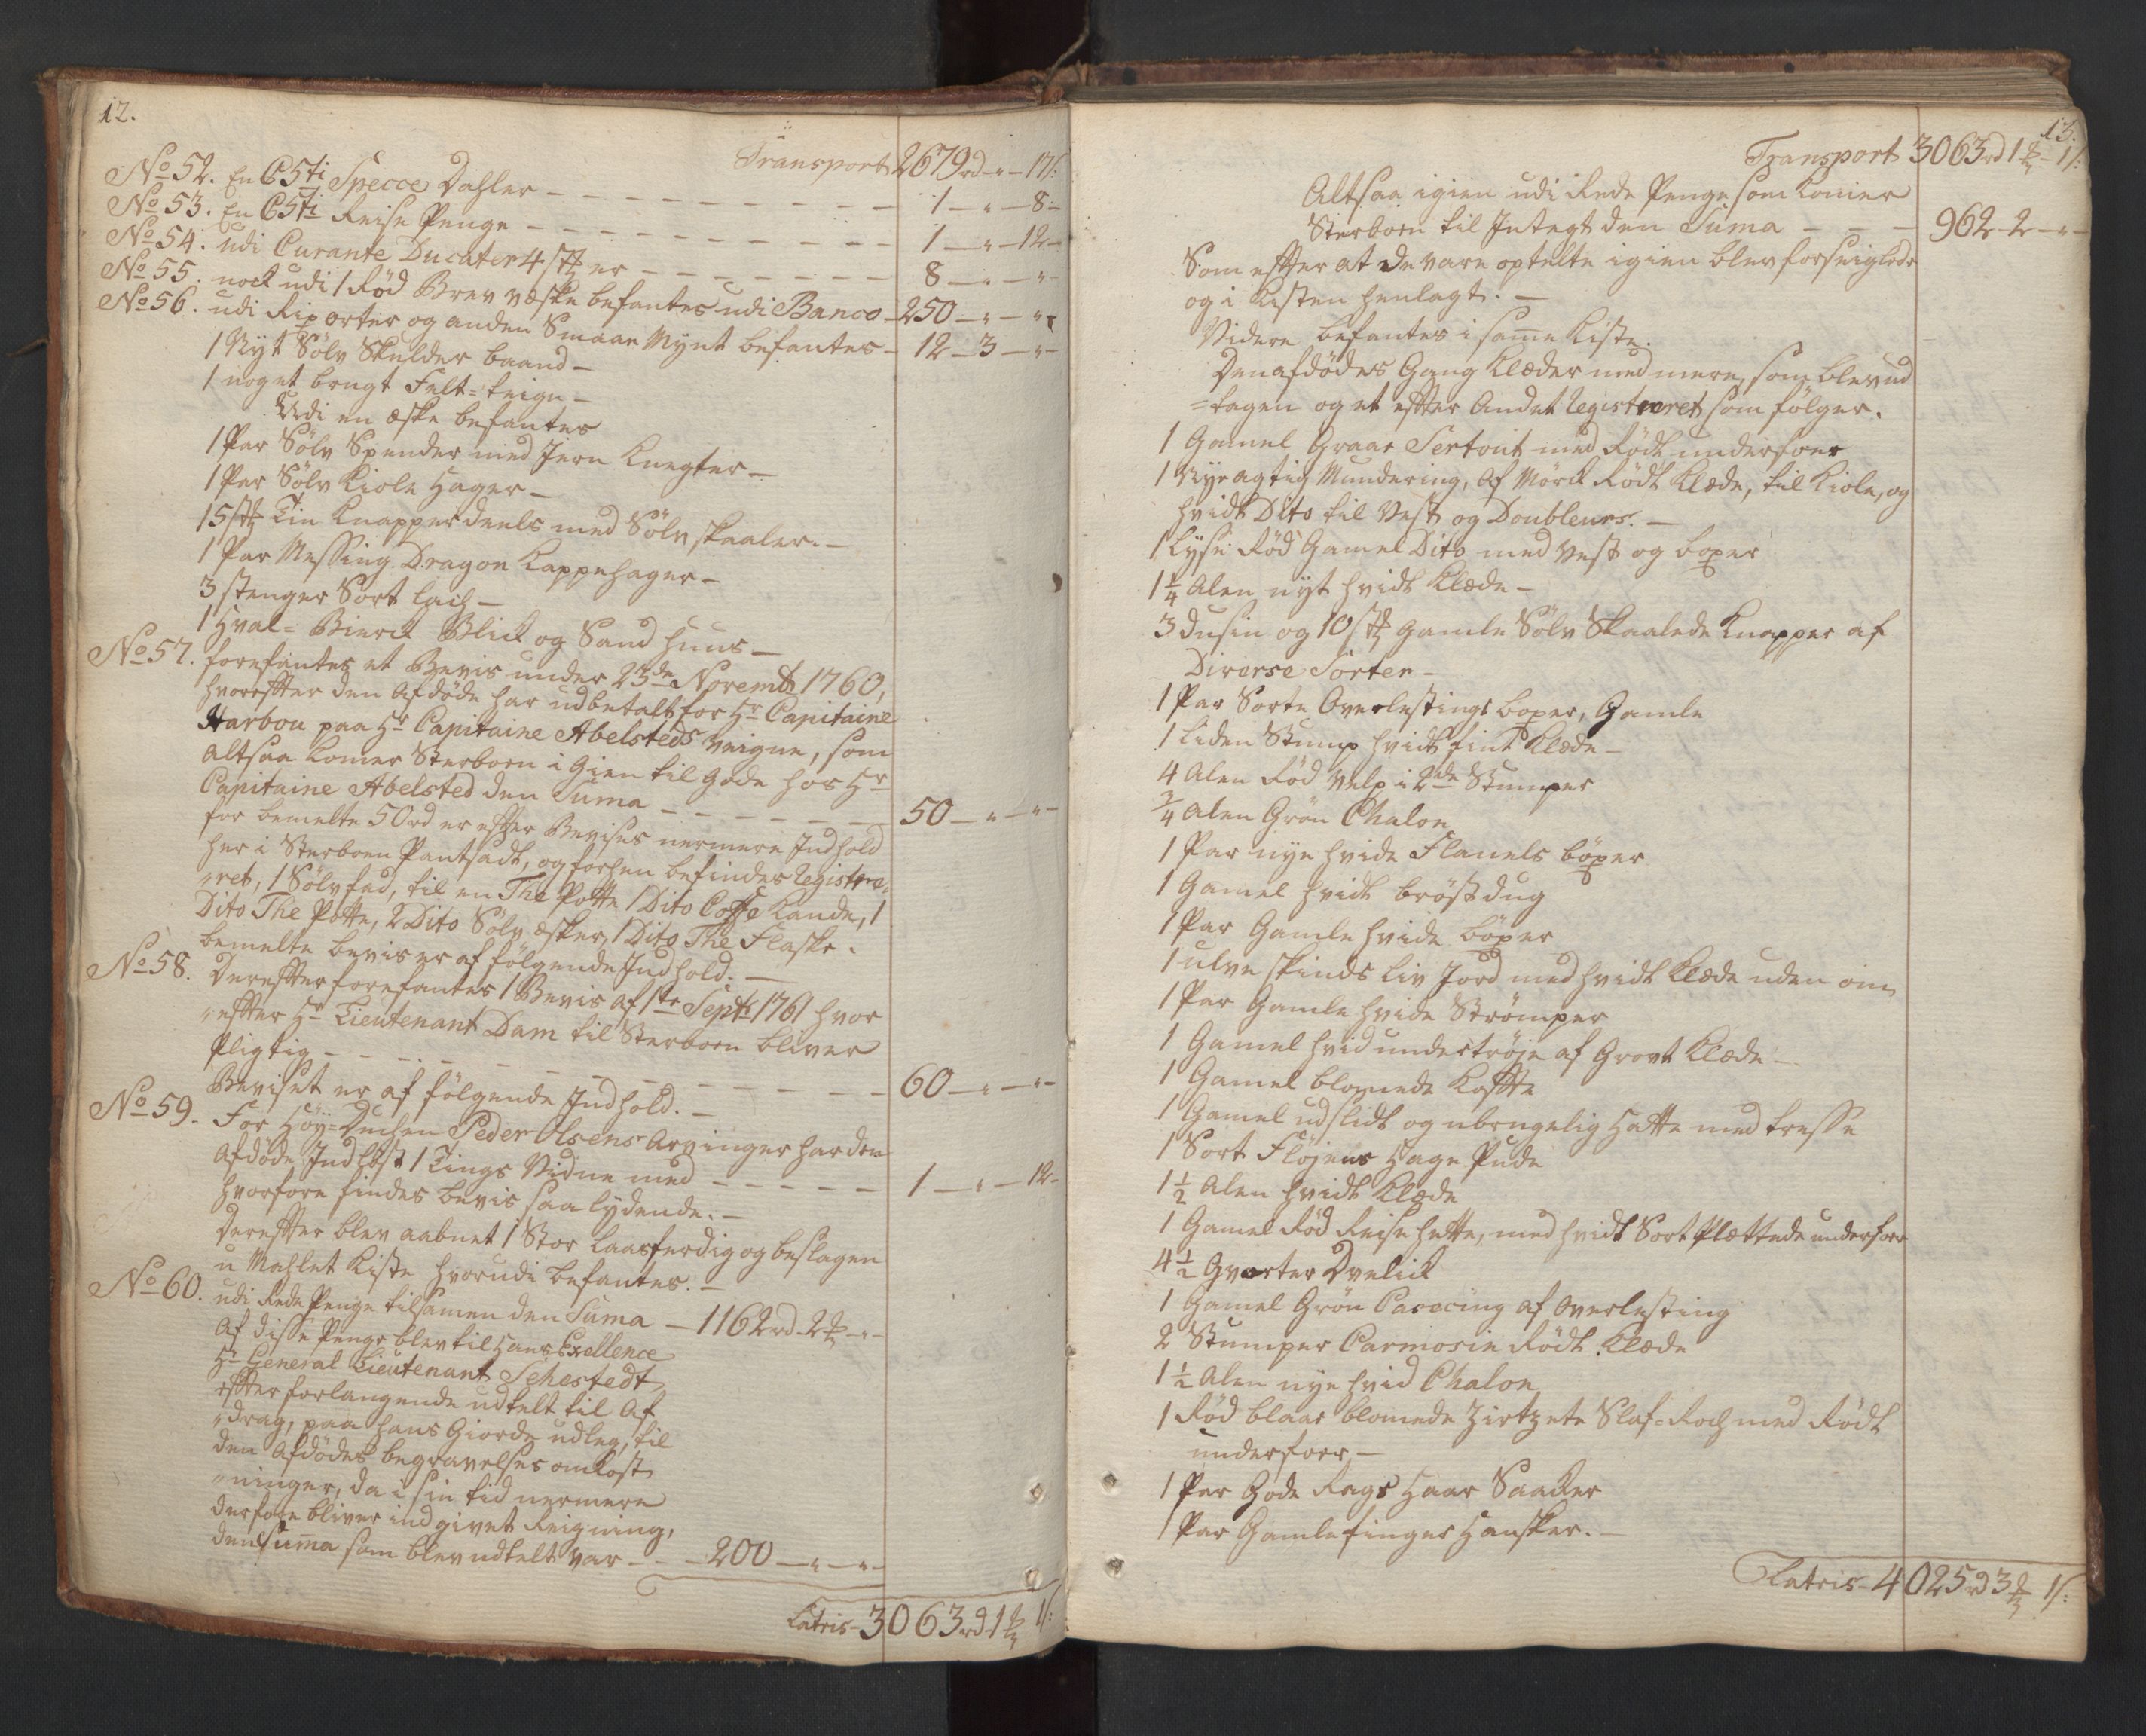 12.
Transport 2679rd - " - 17ſ:
No 52. En 65ti Specce Dahler - 1 - " - 8 -
No 53. En 65ti Reise Penge - 1 - " - 12 -
No 54. udi Curante Ducater 4 stk er - 8 - " - " -
No 55. nock udi 1 Rød Brev væske befantes udi Banco - 250 - " - "
No 56. udi Rixorter og anden Smaae Mynt befantes - 12 - 3 - " -
1 Nyt Sölv Skulder baand -
1 noget brugt Felt-teign -
Udi en æske befantes
1 Par Sölv Spender med Jern Knegter -
1 Par Sölv Kiole Hager -
15 stk Tin Knapper deels med Sölv skaaler -
1 Par Messing Dragon Kappehager -
3 stenger Sort Lach -
1 Hval- Bierck Blick og Sand Huus -
No 57. forefantes et Bevis under 23de Novembr 1760,
hvoreffter den Afdöde har udbetalt for Hr Capitaine
Harbou paa Hr Capitaine Abelsteds veigne, som
altsaa komer Sterboen i Gien til gode hos Hr
Capitaine Abelsted den Suma - 50 - " - " -
for bemelte 50rd er effter Bevises nermere Indhold
her i Sterboen Pantsadt, og forhen befindes Registre-
"ret, 1 Sölv fad, til en The Potte 1 Dito Coffe Kande, 1
Dito The Potte, 2 Dito Sölv æsker, 1 Dito The Flaske.
bemelte bevis er af fölgende Indhold. -
No 58. Dereffter forefantes 1 Bevis af 1te Septbr 1761 hvor
"effter Hr Lieutenant Dam til Sterboen bliver
Pligtig - 60 - " - " -
Beviset er af fölgende Indhold. -
No 59. For Höy- Peder Olsens Arvinger har den
Afdöde Indlöst 1 Tings Vidne med - 1 - " - 12 -
hvorfore findes bevis saa lydende. -
Dereffter blev aabnet 1 Stor Laasferdig og beslagen
u Mahlet Kiste hvorudi befantes. -
No 60. udi Rede Penge tilsamen den Suma - 1162rd 2 mk - " -
Af disse Penge blev til Hans Exellence
Hr General Lieutenant Sehestedt
effter forlangende udtelt til Af
"drag, paa hans Giorde udleg, til
den Afdödes begravelses omkost
"ninger, da i sin tid nermere
derfore bliver ind givet Reigning,
den Suma som blev udtelt var - 200 - " - " -
Latris - 3063rd 1 mk 1ſ:
13.
Transport 3063rd 1 mk - 1ſ:
Altsaa igien udi Rede Penge som komer
Sterboen til Indtegt den Suma - 962 - 2 - " -
Som effter at de vare optelte igien blev forseiglede
og i Kisten henlagt. -
Videre befantes i same Kiste.
Den afdödes Gang Klæder med mere, som blev ud
=tagen og et effter Andet Registreret som fölger.
1 Gamel Graae Sertout med Rödt underfoer
1 Nye agtig Mundering, af Mörck Rödt Klæde, til Kiole, og
hvidt Dito til Vest og Doubleurs. -
1 Lyse Röd Gamel Dito med Vest og boxer
1 1/4 Alen nyt hvidt Klæde -
3 dusin og 10 stk gamle Sölv Skaalede Knapper af
Diverse Sorter -
1 Par Sorte Overlestings boxer, Gamle
1 Liden Stump hvidt fint Klæde -
4 Alen Röd Velp i 2de Stumper
3/4 Alen Grön Chalon
1 Par nye hvide Flanels böxer
1 Gamel hvidt bröstdug
1 Par Gamle hvide böxer
1 Ulve skinds Liv Jord med hvidt Klæde uden om
1 Par Gamle hvide Strömper
1 Gamel hvid undertröje af Grovt Klæde -
1 Gamel blomede Koffte
1 Gamel udslidt og ubrugelig Hatte med tresse
1 Sort Flöjens Hage Pude
1 1/2 Alen hvidt Klæde
1 Gamel Röd Reise hette, med hvidt Sort Plættede underfoer
4 1/2 Qvarter Dvelick
1 Gamel Grön af Overlesting
2 Stumper Carmosin Rödt Klæde
1 1/2 Alen nye hvid Chalon
1 Röd blaae blomede Zirtzets Slaf-Rock med Rödt
underfoer -
1 Par Gode Rags Haar Saaker
1 Par Gamle finger Hansker. -
Latris - 4025rd 3 mk 1ſ: